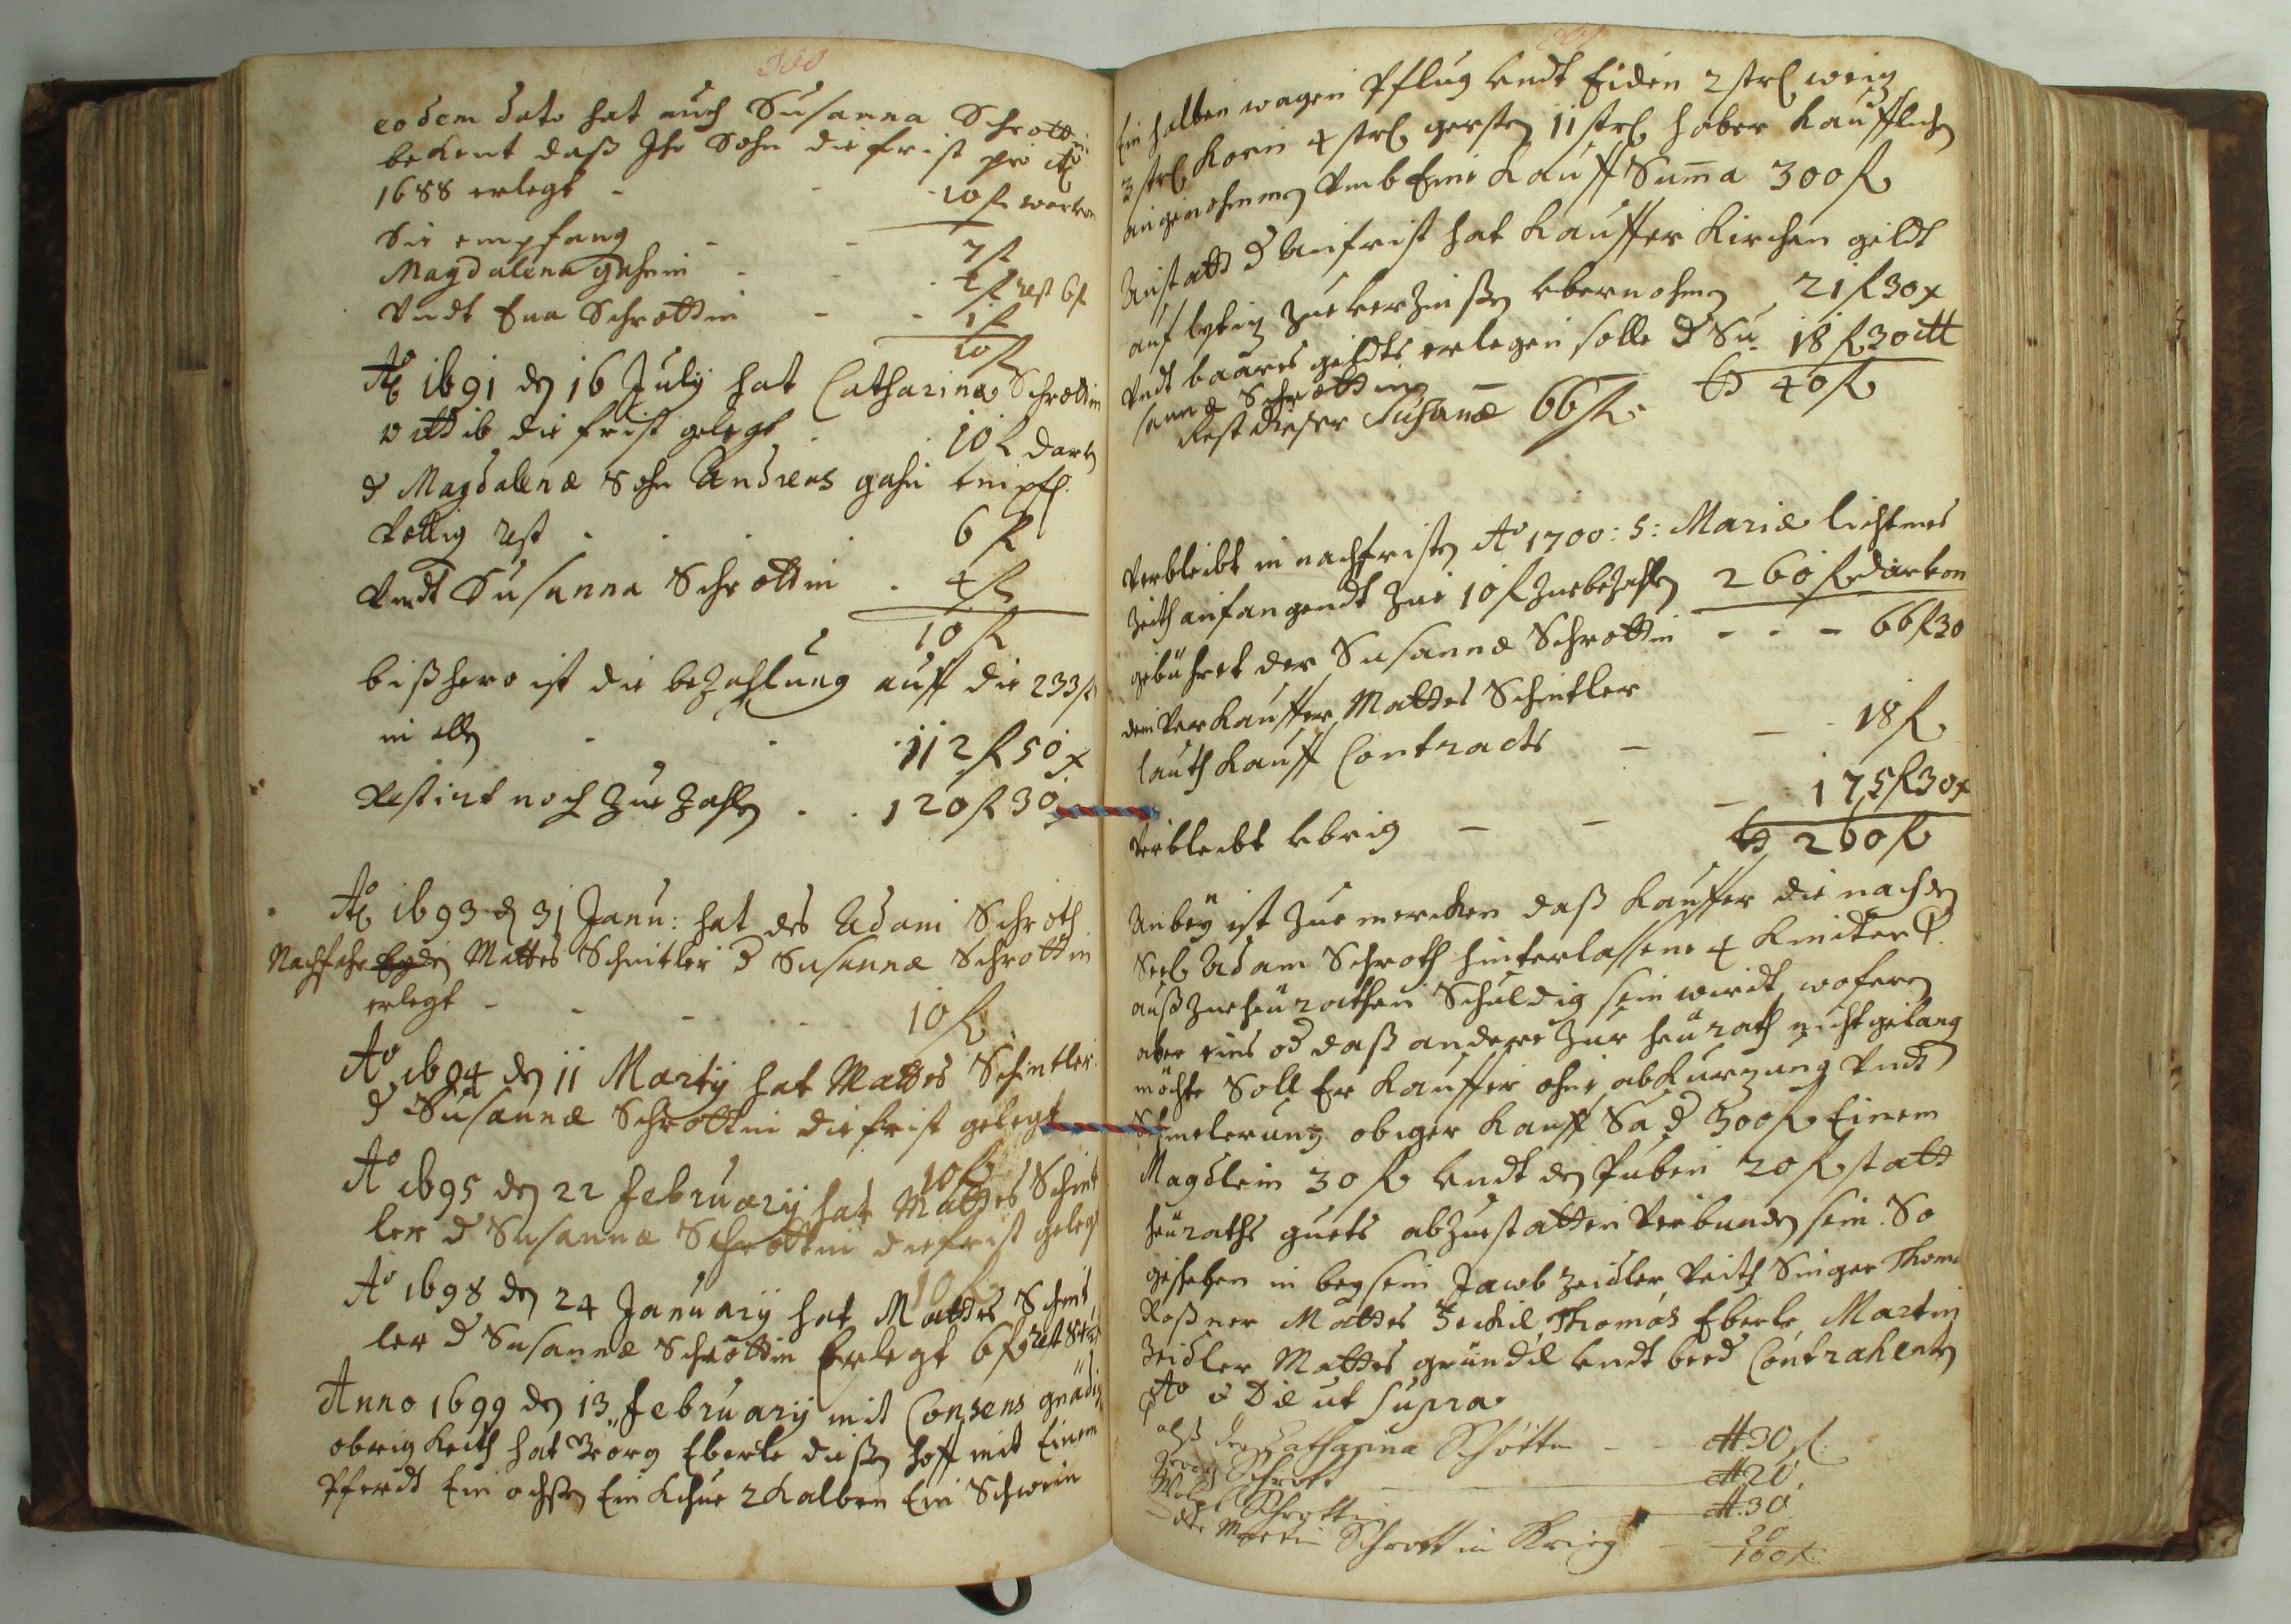 eodem dato hat auch Susanna Schrottin
bekent daß Ihr Sohn die frist pro Aõ
1688 erlegt - - 10 fl worvon
Sie empfang - - 7 fl
Magdalena Gahnin - - 2 fl rest 6 fl
Vndt Eua Schrottin - - 1 fl
10 fl
Aõ 1691 den 16 July hat Catharina Schrottin
wittib die frist gelegt . . 10 fl darv
d Magdalenæ Sohn Andreas gahn empf.
Völlig rest . . . 6 fl
Vndt Susanna Schrottin . 4 fl
10 fl
bißhero ist die bezahlung auff die 233 fl
in allen - - 112 fl 50 x
Restirt noch zue zahlen . . 120 fl 30
Aõ 1693 d 31 Janu: hat des Adam Schroth
Nachfahr Mattes Schintler d Susannæ Schrottin
erlegt - - - - 10 fl
Aõ 1694 den 11 Martij hat Mattes Schintler
d Susannæ Schrottin die frist gelegt
10 fl
Aõ 1695 den 22 February hat Mattes Schint
ler d Susannæ Schrottin die frist gelegt
10 fl
Aõ 1698 den 24 January hat Mattes Schint
ler d Susannæ Schrottin Erlegt 6 fl
Anno 1699 den 13 February mit Consens gnädig
obrigkeith hat Georg Eberle dießen hoff mit Einem
Pferdt Ein ochßen Ein Kshue 2 Kalben Ein Schwein
Ein halben wagen Pflug vndt Eiden 2 strl weiz
3 strl Korn 4 strl gersten 11 strl haber Kaufflichen
angenohmmen Vmb Eine Kauff Suma 300 fl
Anstatt d Anfrist hat Kauffer Kirchen geldt
auf zue verzinßen vbernohmen 21 fl 30 x
Vndt baares geldts erlegen solle d Su 18 fl 30
sannæ Schrottin 40 fl
Rest dieser Susanæ 66 fl
Verbleibt in nachfristen Aõ 1700: S: Mariæ lichtmes
Zeith anfangendt zue 10 fl zuebezahlen 260 fl darvon
gebühret der Susannæ Schrottin - - - 66 fl 30
dem Verkauffer Mattes Schintler
lauth Kauff Contracts - - 18 fl
Verbleibt vbrig - - - 175 fl 30 x
260 fl
Anbey ist zue mercken daß Kauffer die nach den
Seel Adam Schroth hinterlassene 4 Kinder
außzueheürathen Schuldig sein wirdt, wofern
aber eins od daß andere zur heürath nicht gelang
möchte Soll Er Kauffer ohne abkurzung Vndt
Schmelerung obiger Kauff Sa d 300 fl Einem
Magdlein 30 fl vndt den Puben 20 fl statt
heüraths guets abzuestatten Verbunden sein. So
geschehen in beysein Jacob Zeidler, Veith Singer Thoma
Roßner Mattes Jeckil, Thomas Eberle, Martin
Zeidler Mattes gründl vndt beed Contrahenten
Aõ & Die ut supra
alß der Catharina Schöttin - - 30 fl.
Georg Schrott - 20.
Schrottin - 30.
Martin Schrott in Krieg - 20
100 fl